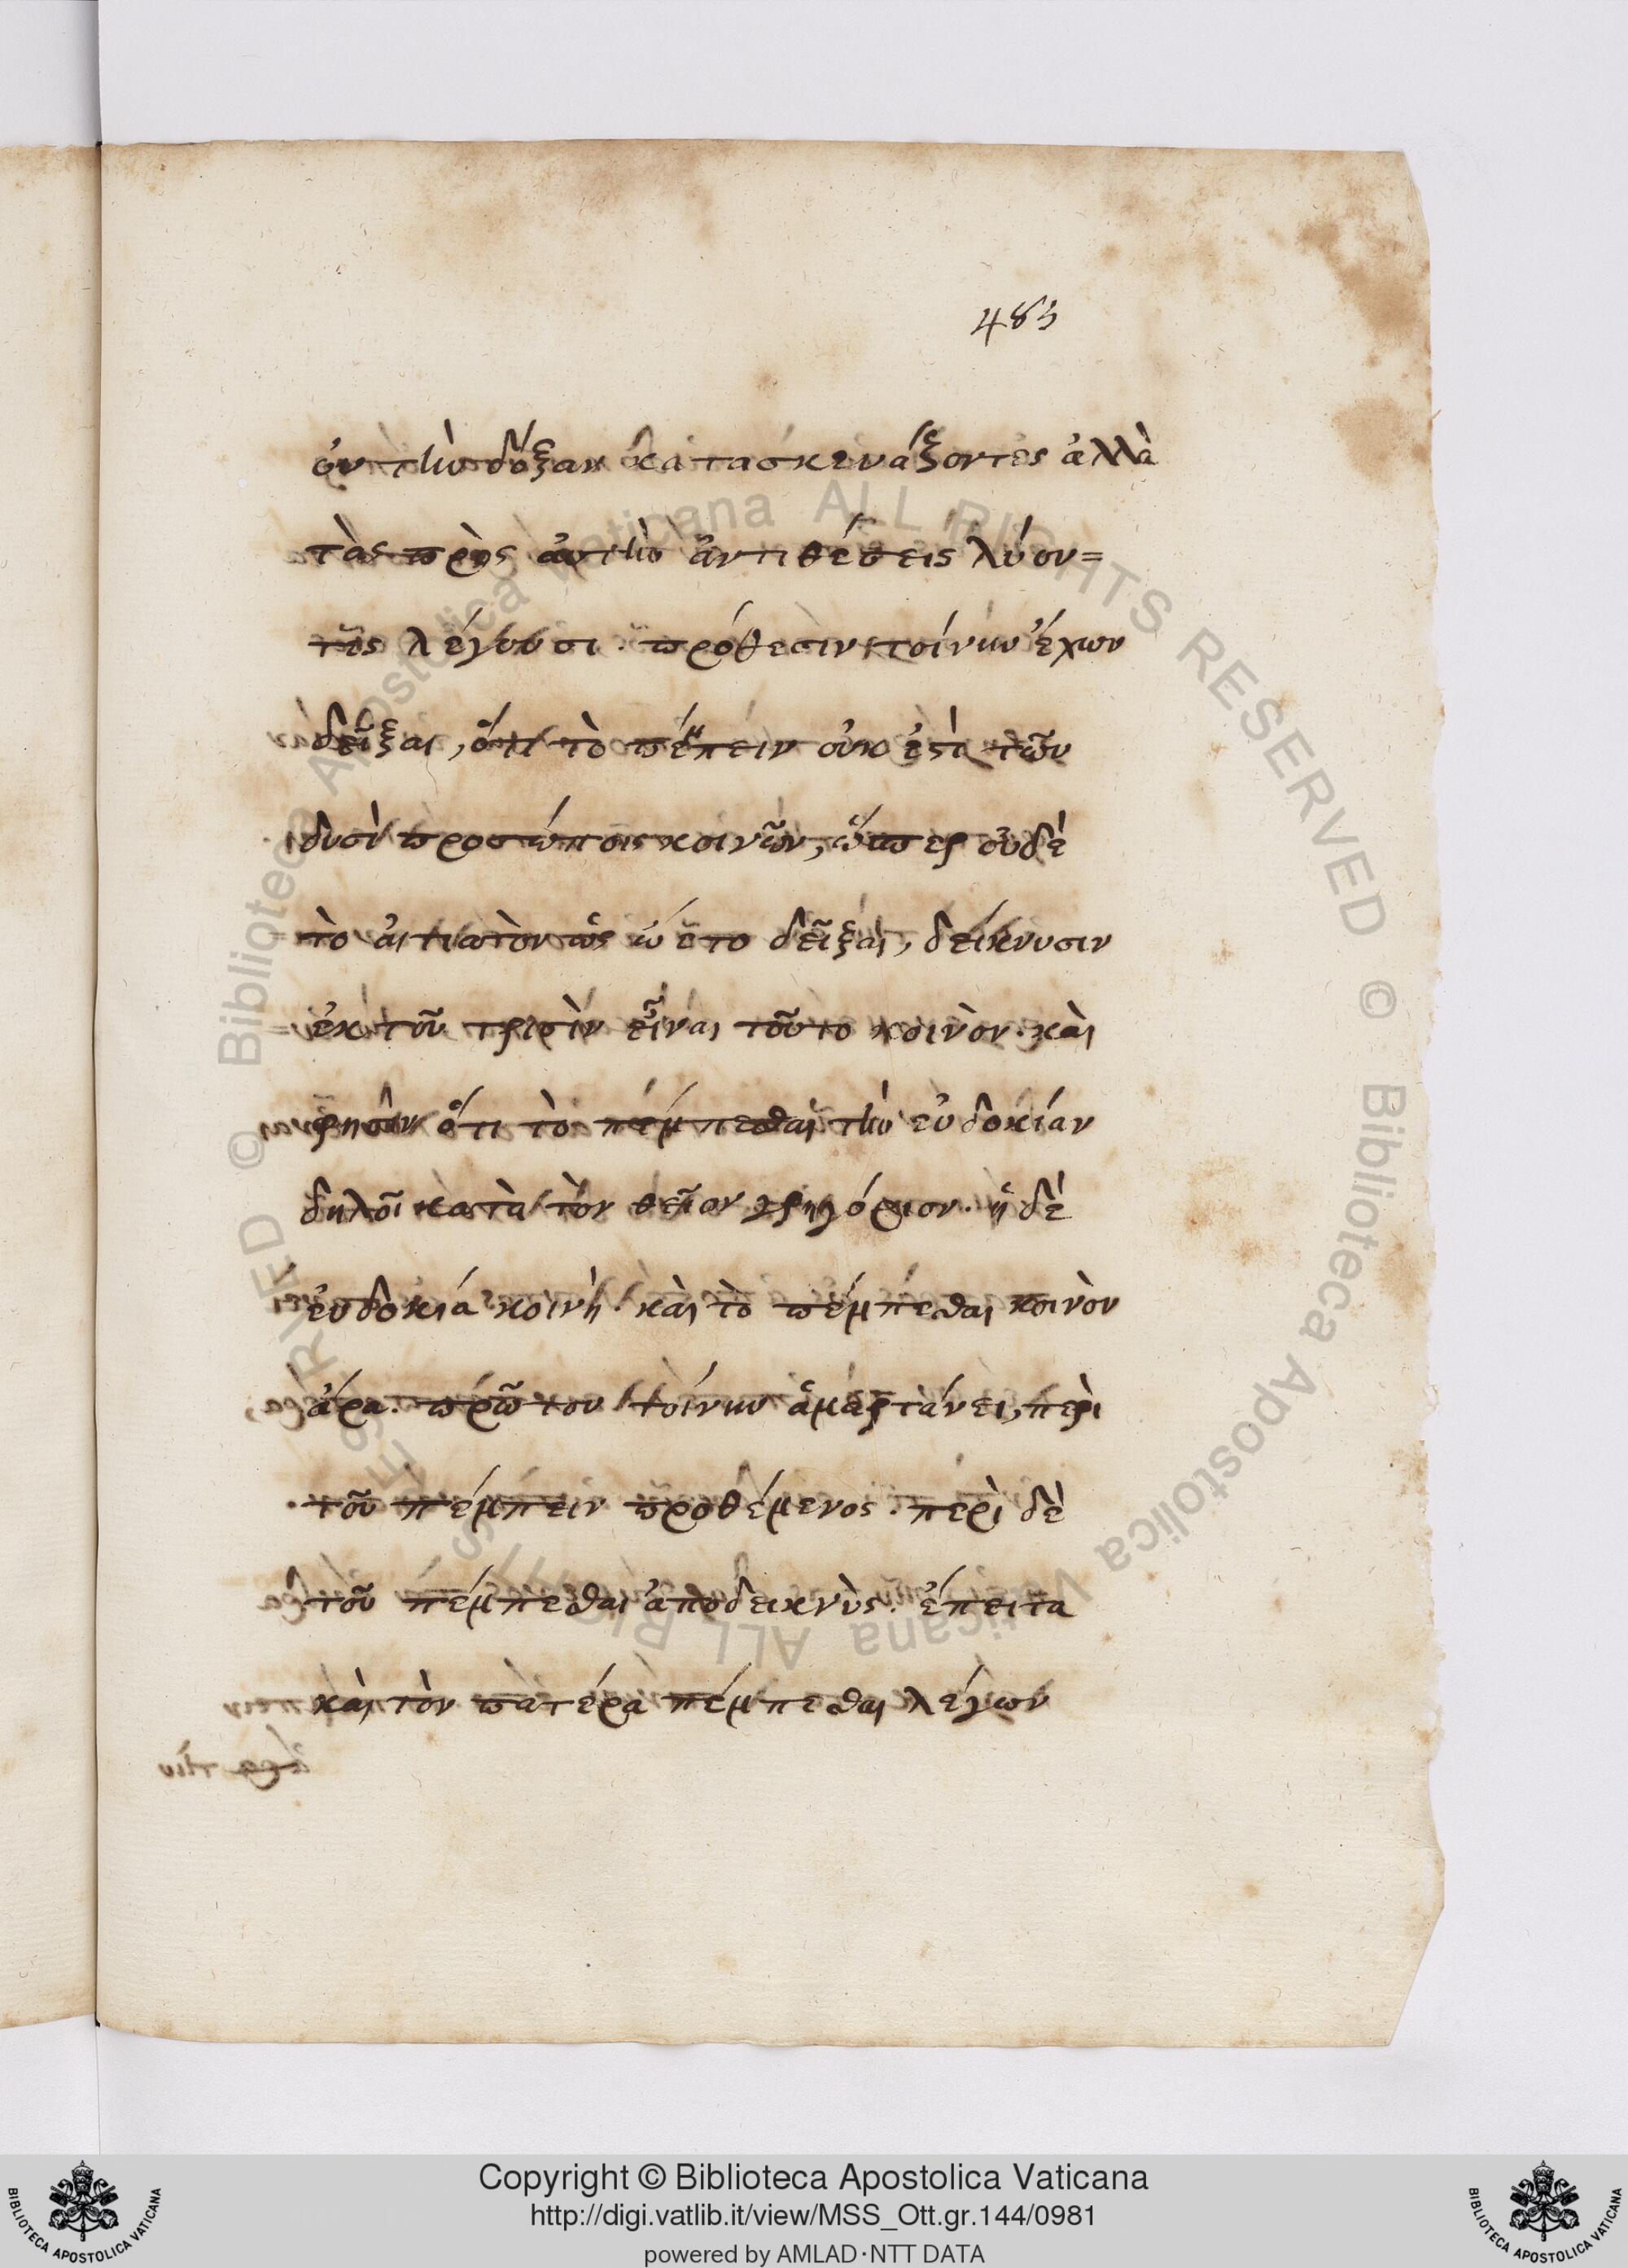 483
οὐ τὴν δόξαν κατασκευάζοντες ἀλλὰ
τὰς πρὸς αὐτὴν ἀντιθέσεις λύον=
τες λέγουσι. πρόθεσιν τοίνυν ἔχων
δεῖξαι, ὅτι τὸ πέμπειν οὐκ ἐστὶ τῶν
δυσὶ προσώποις κοινῶν, ὥσπερ οὐδὲ
τὸ αἰτιατὸν ὡς ᾤετο δεῖξαι, δείκνυσιν
ἐκ τοῦ τρισὶν εἶναι τοῦτο κοινὸν. καὶ
φησὶν ὅτι τὸ πέμπεσθαι τὴν εὐδοκίαν
δηλοῖ κατὰ τὸν θεῖον γρηγόριον. ἡ δὲ
εὐδοκία κοινὴ. καὶ τὸ πέμπεσθαι κοινὸν
ἄρα. πρῶτον τοίνυν ἁμαρτάνει, περὶ
τοῦ πέμπειν προθέμενος. περὶ δὲ
τοῦ πέμπεσθαι ἀποδεικνὺς. ἔπειτα
καὶ τὸν πατέρα πέμπεσθαι λέγων
© Biblioteca Apostolica Vaticana ALL RIGHTS RESERVED © Biblioteca Apostolica Vaticana ALL RIGHTS RESERVED
Copyright © Biblioteca Apostolica Vaticana
http://digi.vatlib.it/view/MSS_Ott.gr.144/0981
powered by AMLAD·NTT DATA
BIBLIOTECA APOSTOLICA VATICANA
BIBLIOTECA APOSTOLICA VATICANA